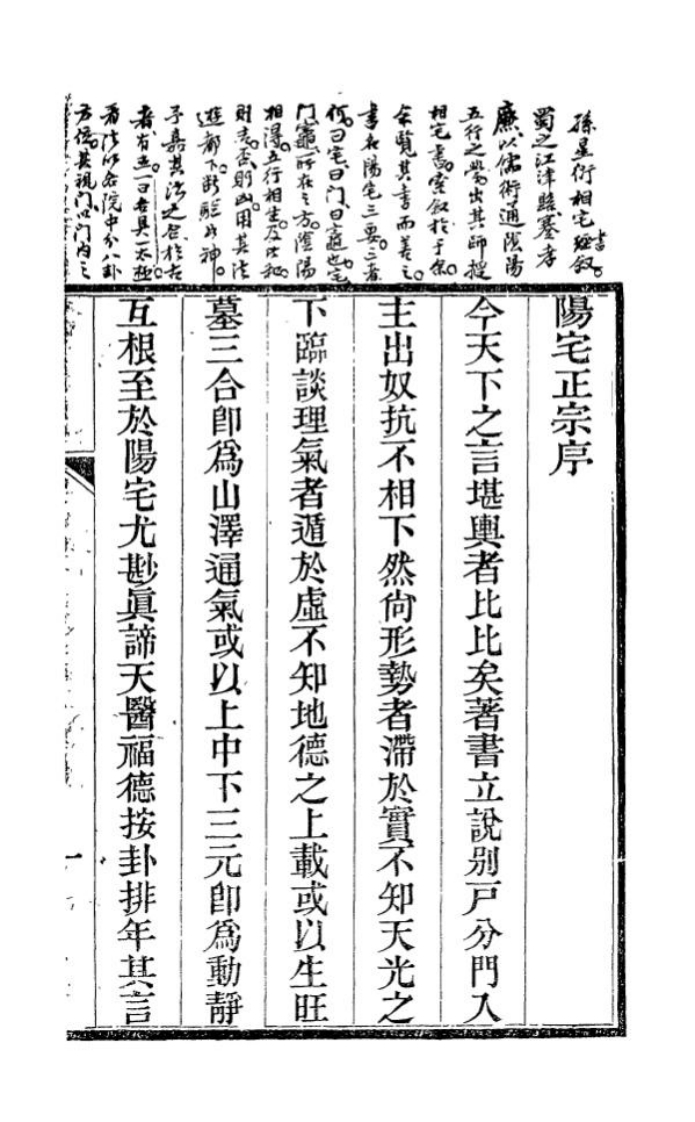 孫星衍相宅書敘。
蜀之江津縣蹇孝
廉以儒術通陰陽
五行之學出其師授
相宅書。索敘於予。余
余覽其書而善之。
書在陽宅三要。三者
何。曰宅。曰門。曰竈也。宅
門竈所在之方。陰陽
相得。五行相生及比和
則吉。否則凶。用其法
遊都下。斷驗如神。
予嘉其法之合於古
者有五。一曰各具一太極
看法以各院中分八卦
方位。其視門以門內之
陽宅正宗序
今天下之言堪輿者比比矣著書立說別戸分門入
主出奴抗不相下然尙形勢者滯於實不知天光之
下臨談理氣者遁於虛不知地德之上載或以生旺
墓三合卽爲山澤通氣或以上中下三元卽爲動靜
互根至於陽宅尤尠眞諦天醫福德按卦排年其言
一